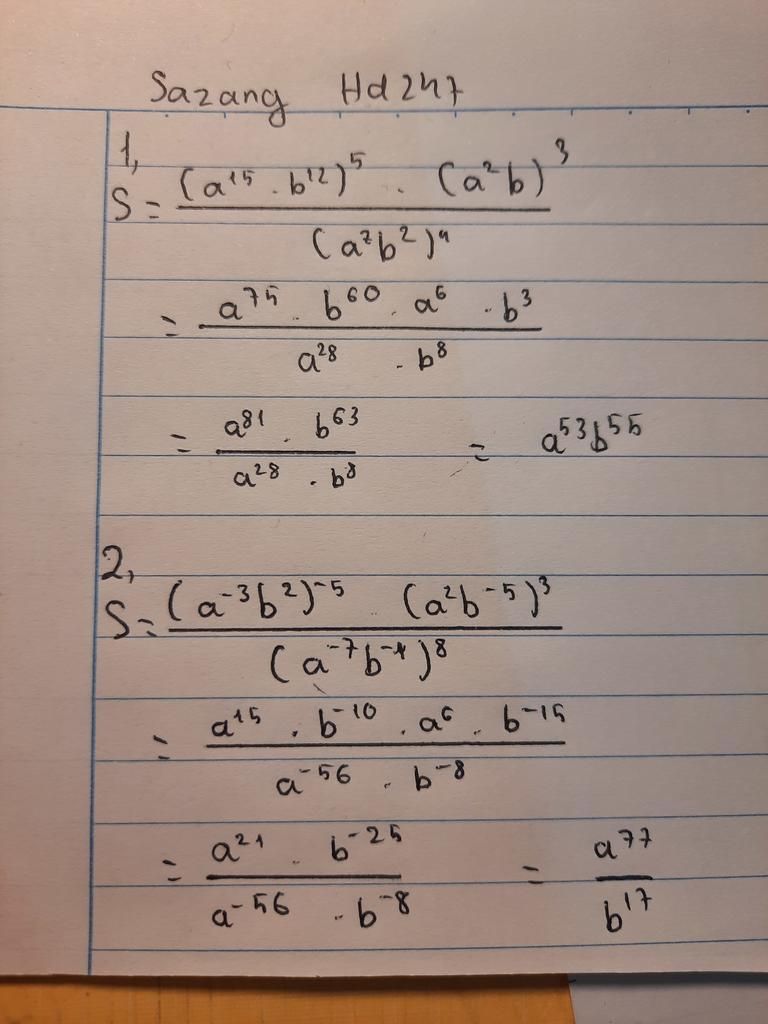 Sazang Hd247
1,
S = \frac{(a^{15} \cdot b^{12})^5 \cdot (a^2 b)^3}{(a^7 b^2)^4}
= \frac{a^{75} \cdot b^{60} \cdot a^6 \cdot b^3}{a^{28} \cdot b^8}
= \frac{a^{81} \cdot b^{63}}{a^{28} \cdot b^8} = a^{53} b^{55}
2,
S = \frac{(a^{-3} b^2)^{-5} (a^2 b^{-5})^3}{(a^{-7} b^{-1})^8}
= \frac{a^{15} \cdot b^{-10} \cdot a^6 \cdot b^{-15}}{a^{-56} \cdot b^{-8}}
= \frac{a^{21} \cdot b^{-25}}{a^{-56} \cdot b^{-8}} = \frac{a^{77}}{b^{17}}